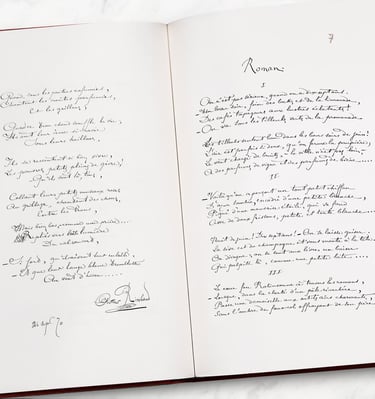 Quand, sous les poutres enfumées,
Chantent les croûtes parfumées,
Et les grillons,
Quand ce trou chaud souffle la vie;
Ils ont leur âme si ravie
Sous leurs haillons,
Ils se ressentent si bien vivre,
Les pauvres petits pleins de givre,
- Qu'ils sont là, tous,
Collant leurs petits museaux roses
Au grillage, chantant des choses,
Entre les trous,
Mais bien bas, comme une prière....
Repliés vers cette lumière
Du ciel rouvert,
- Si fort, qu'ils crèvent leur culotte,
- Et que leur lange blanc tremblotte
Au vent d'hiver.....
Arthur Rimbaud
20 sept. 70
7
Roman.
I
On n'est pas sérieux, quand on a dix-sept ans.
- Un beau soir, foin des bocks et de la limonade,
Des cafés tapageurs aux lustres éclatants!
- On va sous les tilleuls verts de la promenade.
Les tilleuls sentent bon dans les bons soirs de juin!
L'air est parfois si doux, qu'on ferme la paupière;
Le vent chargé de bruits, - la ville n'est pas loin, -
A des parfums de vigne et des parfums de bière....
II
- Voilà qu'on aperçoit un tout petit chiffon
D'azur sombre, encadré d'une petite branche,
Piqué d'une mauvaise étoile, qui se fond
Avec de doux frissons, petite et toute blanche....
Nuit de juin! Dix-sept ans! - On se laisse griser.
La sève est du champagne et vous monte à la tête....
On divague; on se sent aux lèvres un baiser
Qui palpite là, comme une petite bête....
III
Le cœur fou Robinsonne à travers les romans,
- Lorsque, dans la clarté d'un pâle réverbère,
Passe une demoiselle aux petits airs charmants,
Sous l'ombre du faux-col effrayant de son père....